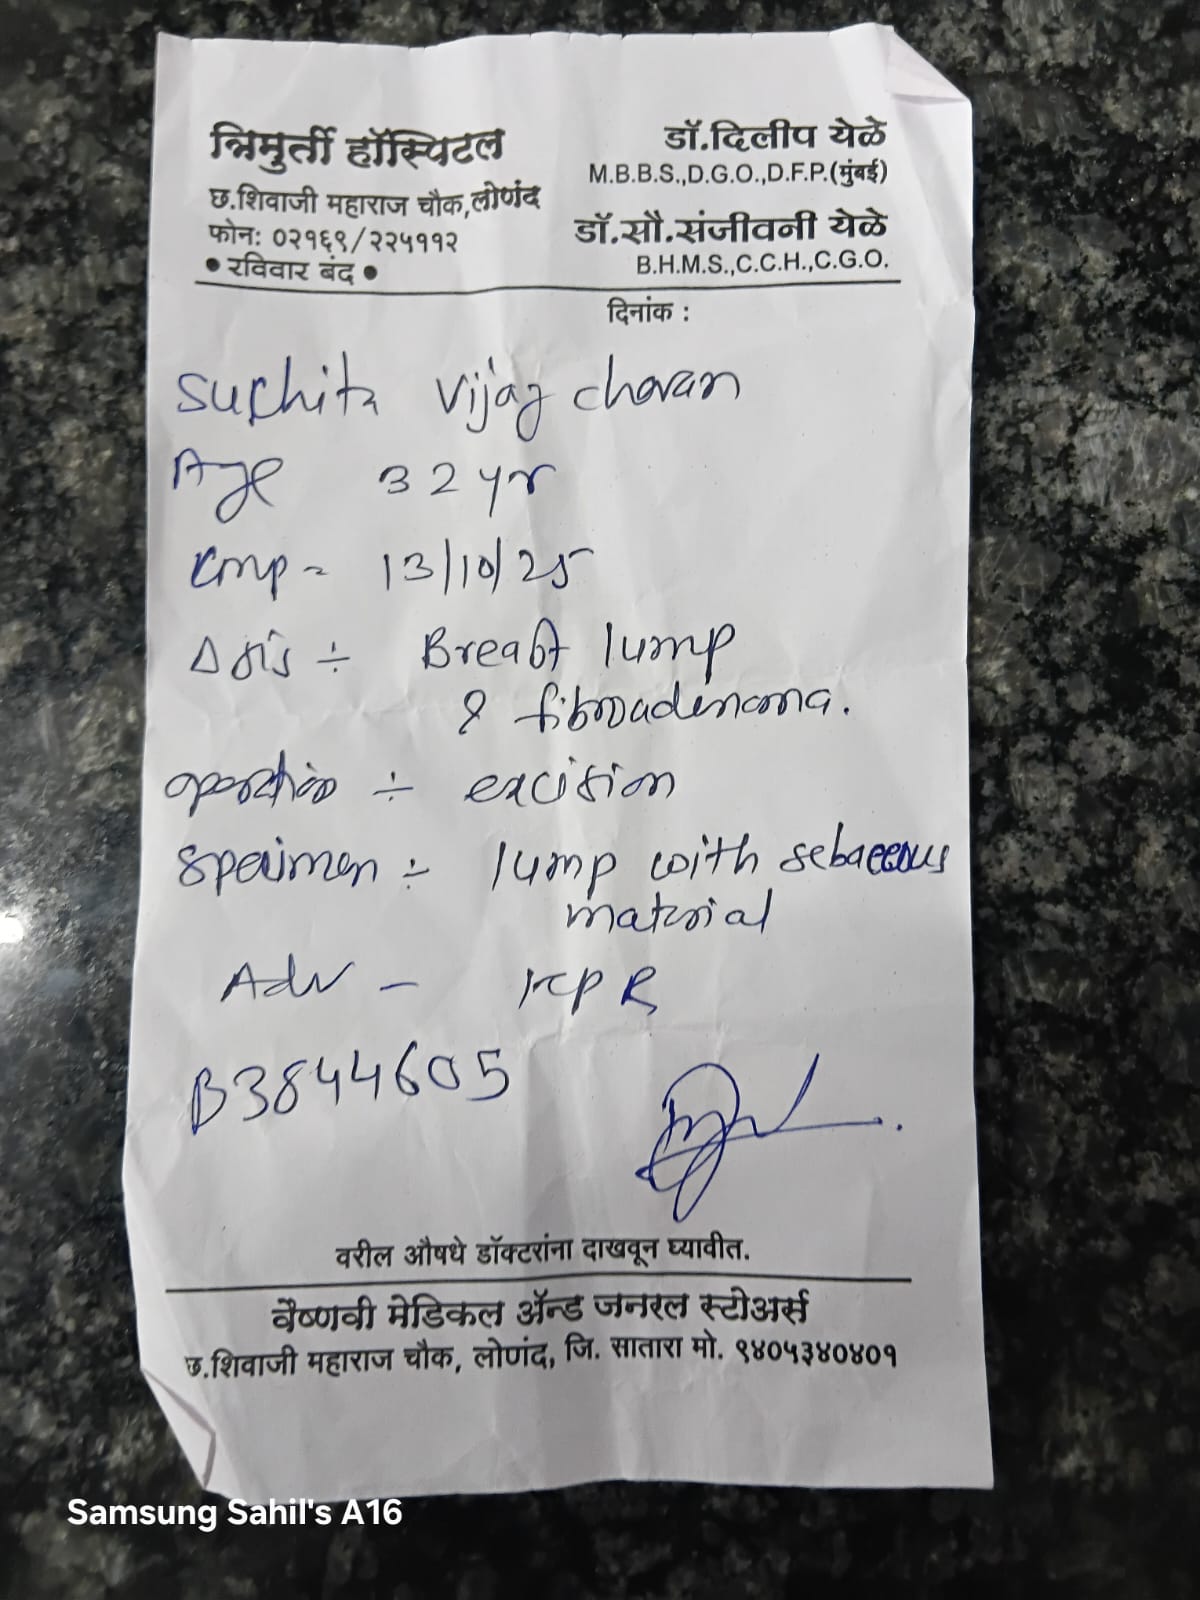 त्रिमुर्ती हॉस्पिटल
छ.शिवाजी महाराज चौक,लोणंद
फोन: ०२१६९/२२५११२
• रविवार बंद •
डॉ.दिलीप येळे
M.B.B.S.,D.G.O.,D.F.P.(मुंबई)
डॉ.सौ.संजीवनी येळे
B.H.M.S.,C.C.H.,C.G.O.
दिनांक :
Suchita Vijay chavan
Age 32 yr
Lmp = 13/10/25
Δsis ÷ Breast lump
? fibroadenoma.
operation ÷ excision
specimen ÷ lump with sebaceous
material
Adv - HPR
B3844605
वरील औषधे डॉक्टरांना दाखवून घ्यावीत.
वैष्णवी मेडिकल ॲन्ड जनरल स्टोअर्स
छ.शिवाजी महाराज चौक, लोणंद, जि. सातारा मो. ९४०५३४०४०१
Samsung Sahil's A16